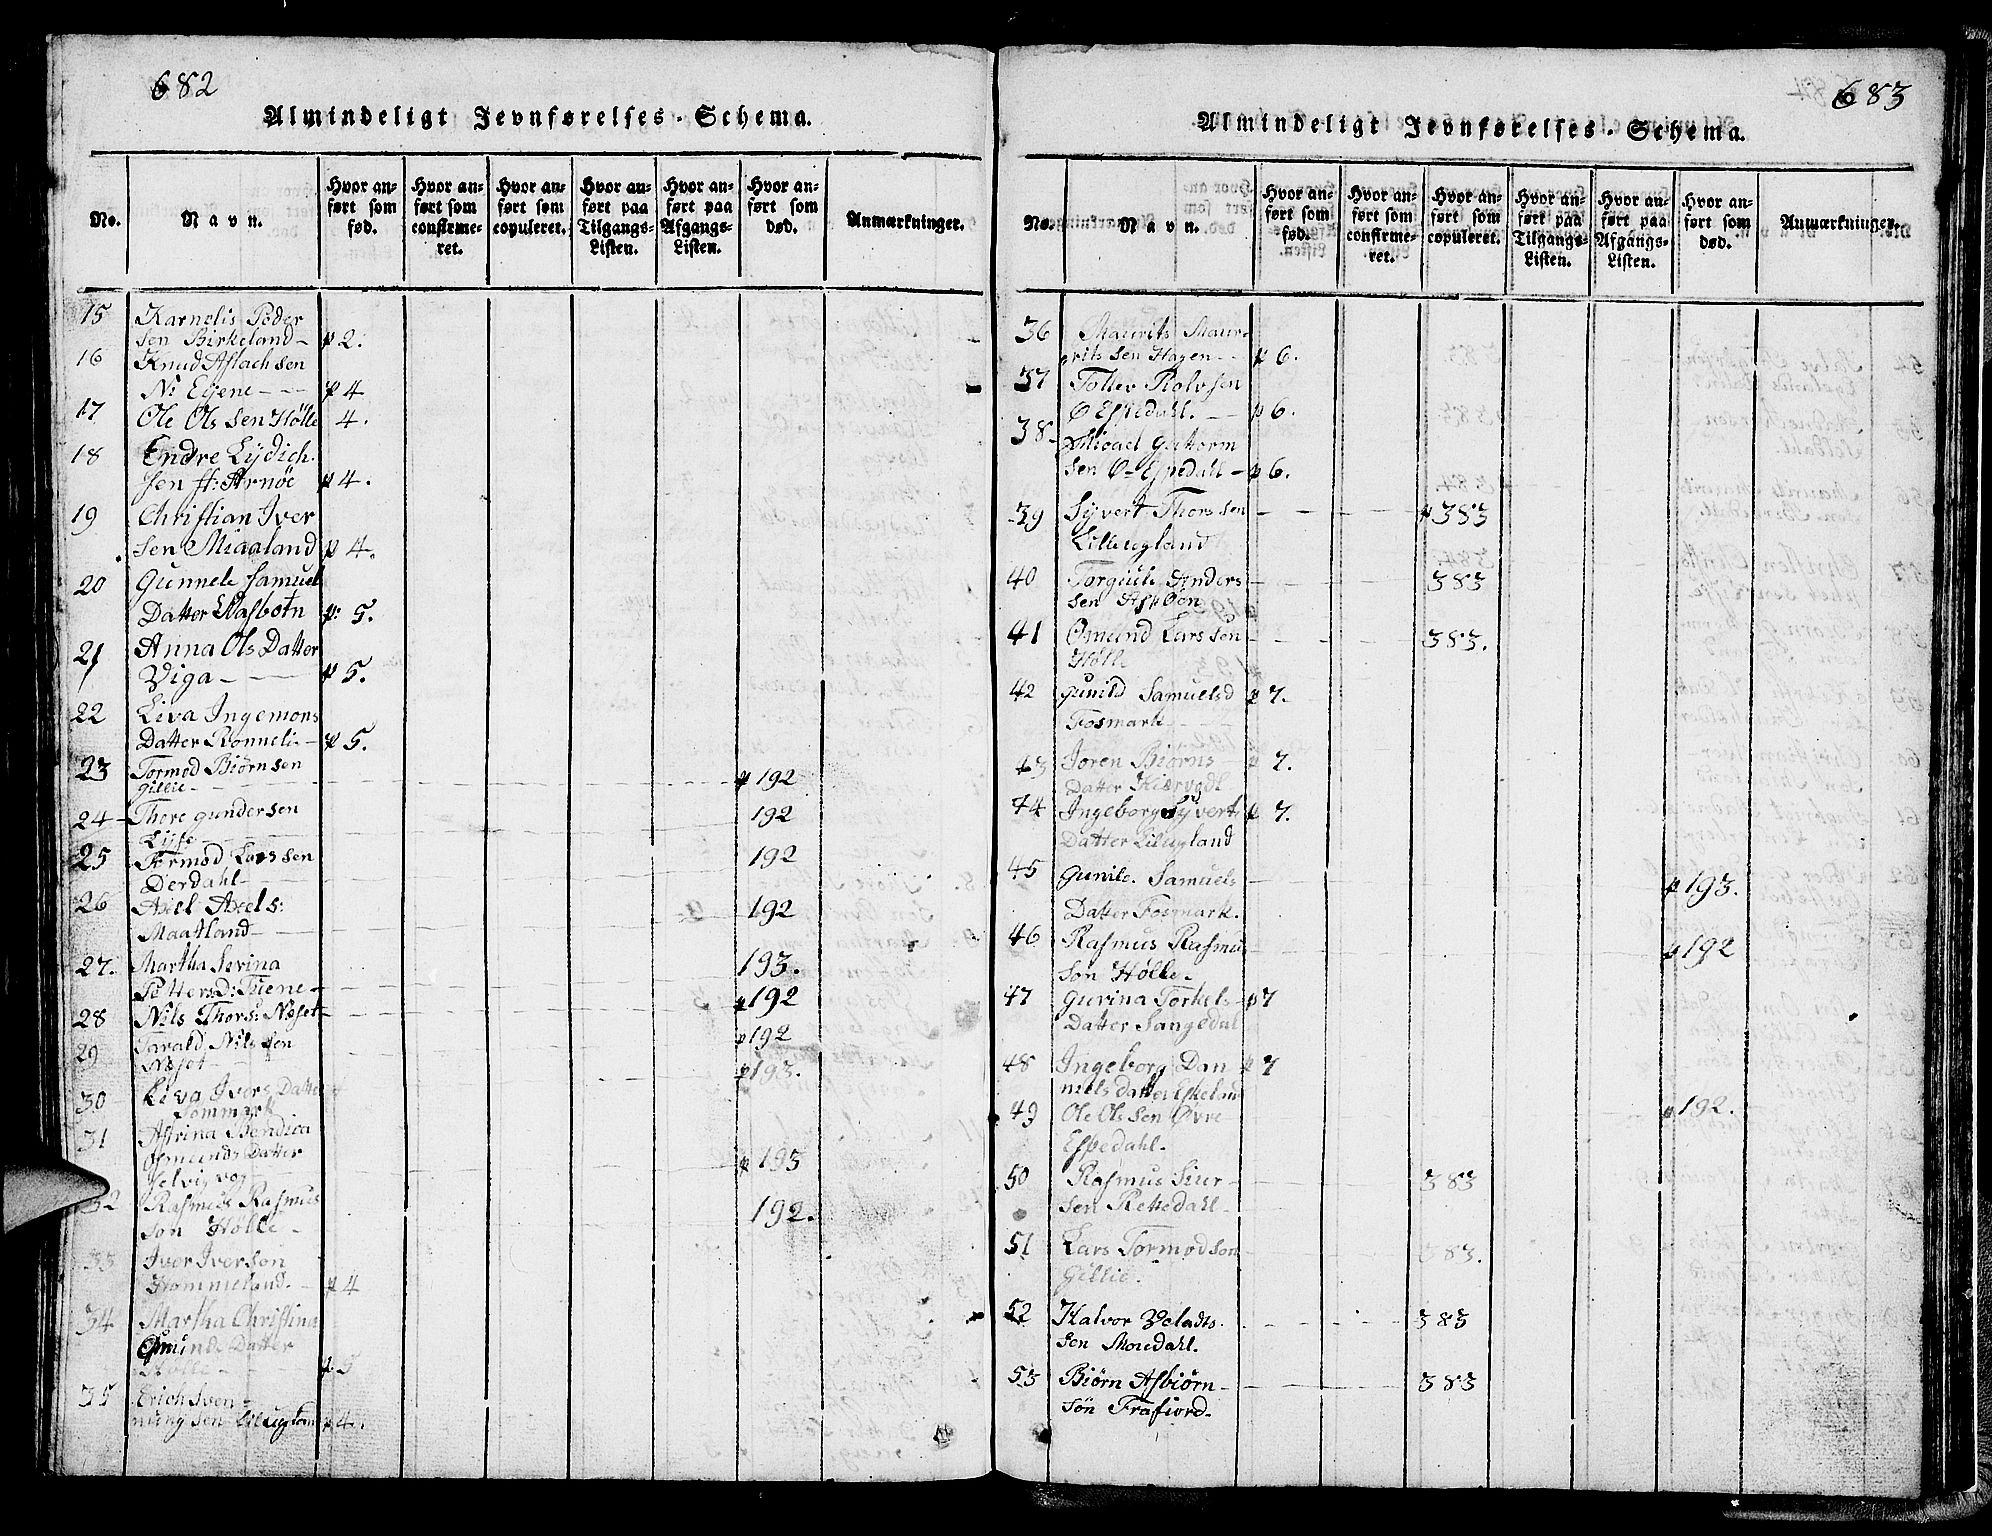 682
Almindeligt Jevnførelses-Schema.
No. Navn. Hvor anført som fød. Hvor anført som confirmeret. Hvor anført som copuleret. Hvor anført paa Tilgangs-Listen. Hvor anført paa Afgangs-Listen. Hvor anført som død. Anmærkninger.
15 Karnelis Peder
sen Birkeland- p 2.
16 Knud Aslachsen
Ni Eyene - - p 4
17 Ole Olssen Hölle 4.
18 Endre Lydich.
sen ft: Arnöe p 4.
19 Christian Iver
sen Miaaland p 4.
20 Gunnele Samuel
Datter Wasbotn p: 5.
21 Anna Ols Datter
Viga - p 5.
22 Liva Ingemons
Datter Ronneli- p 5.
23 Tormod Biörnsen p 192
Gillie-
24 Thore gundersen 192
Lyse
25 Tormod Larssen 192
Derdahl-
26 Axel Axels: 192
Maatland-
27. Martha Serina 193.
Pettersd: Tiene- p 192
28 Nils Thors: Neset-
29 Tarald Nilssen p 192
Neset- p 193.
30 Liva Ivers Datter
Sommark
31 Asrina Bendica
Osmunds Datter p 193
Selvigvog
32 Rasmus Rasmus 192.
son Hölle-
33 Iver Iverson
Hommeland. p 4
34 Martha Christina
Omunds Datter
Hölle- p 5
35 Erich Sven-
nung sen Lilugland p 4.
683
Almindeligt Jevnførelses-Schema.
No. Navn. Hvor anført som fød. Hvor anført som confirmeret. Hvor anført som copuleret. Hvor anført paa Tilgangs-Listen. Hvor anført paa Afgangs-Listen. Hvor anført som død. Anmærkninger.
36 Maurits Maur-
ritssen Hagen- p 6.
37 Tollev Rolvsen
O Espedahl. - p 6.
38. Micael Guttorm
sen O-Espedall- p 6.
39 Syvert Thorssen p 383
Lilleugland
40 Torgiuls Anders 383
sen Aspöen
41 Osmund Larssen 383.
Hölle
42 Gunild Samuelsd p 7.
Fosmark
43 Joren Biörns p 7.
Datter Kiervogl
44 Ingeborg Syverts p 7.
Datter Lilugland
45 Gunile. Samuels p 193.
Datter Fosmark.
46 Rasmus Rasmus p 192
sön Hölle-
47 Gurina Torkels- p 7
Datter Sangedal
48 Ingeborg Dan p 7
niels datter Eskeland
49 Ole Olssen Övre p 192.
Espedahl.
50 Rasmus Siur- 383
sen Rettedahl-
51 Lars Tormodson 383.
Gillie.
52 Halvor Veladts. 383
sen Moredahl.
53 Biörn Asbiörn- 383
sön Frafiord-